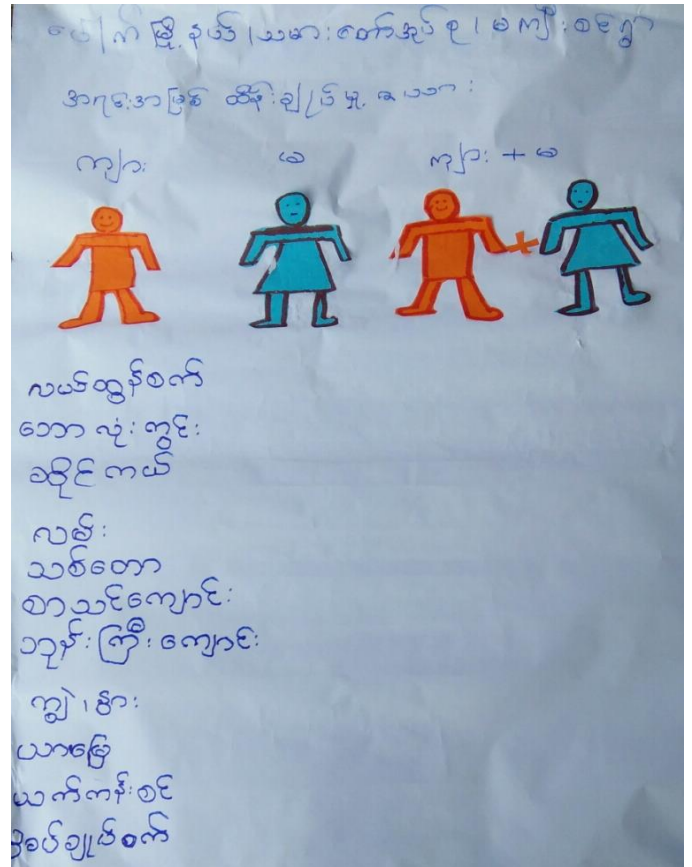 ပေါက်မြို့နယ်၊သမားတော်အုပ်စု၊မကျီးစင်ရွာ
အရင်းအမြစ် ထိန်းချုပ်မှု ဇယား
ကျား မ ကျား + မ
လယ်ထွန်စက်
ဘောလုံးကွင်း
ဆိုင်ကယ်
လမ်း
သစ်တော
စာသင်ကျောင်း
ဘုန်းကြီးကျောင်း
ကျွဲ၊နွား
ယာမြေ
ယက်ကန်းစင်
အပ်ချုပ်စက်